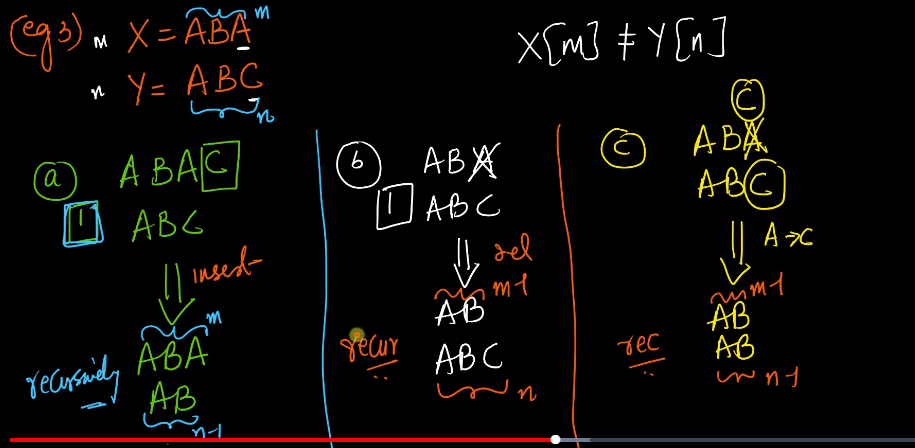 (eg3) m X = ABA m
n Y = ABC n
X[m] ≠ Y[n]
a ABAC
1 ABC
insert
m
ABA
recursively AB
n-1
b ABA
1 ABC
del
m-1
AB
recur ABC
n
C
c ABA
ABC
A→C
m-1
AB
rec AB
n-1